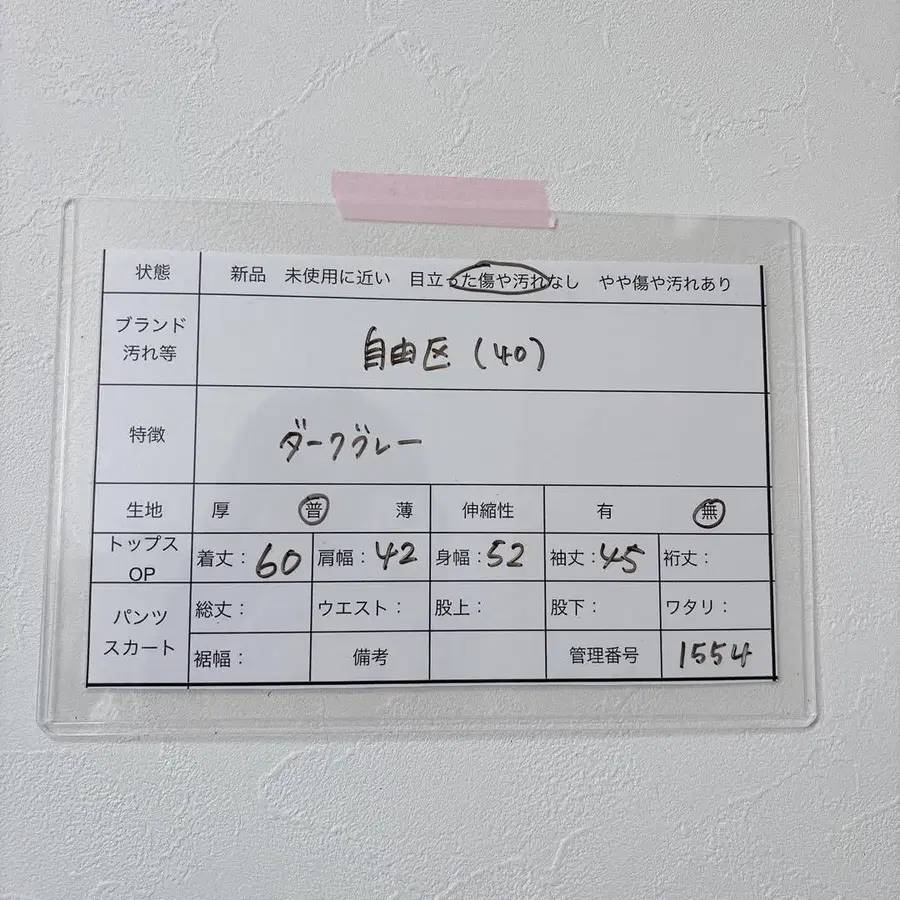 状態 新品 未使用に近い 目立った傷や汚れなし やや傷や汚れあり
ブランド
汚れ等
自由区(40)
特徴 ダークグレー
生地 厚 普 薄 伸縮性 有 無
トップス
OP
着丈:60 肩幅:42 身幅:52 袖丈:45 裄丈:
パンツ
スカート
総丈: ウエスト: 股上: 股下: ワタリ:
裾幅: 備考 管理番号 1554